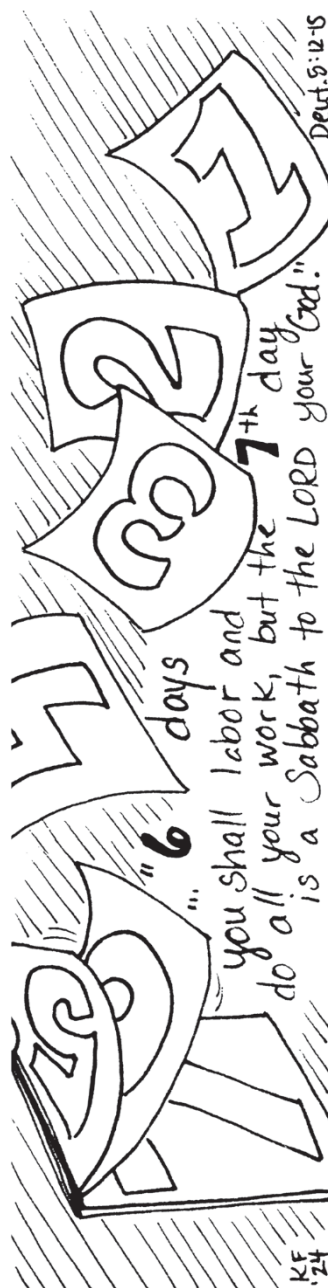 1
2
3
4
5
6
7
"6 days
...
you shall labor and
do all your work, but the 7th day
is a Sabbath to the LORD your God."
Deut. 5:12-15
KF
'24